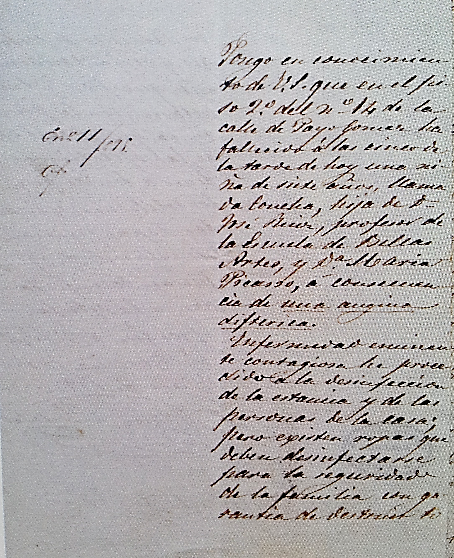 Pongo en conocimien
to de V.S. que en el pi
so 2º del nº 14 de la
calle de Payo Gomez ha
fallecido a las cinco de
la tarde de hoy una ni
ña de siete años, llama
da Concha, hija de D.
José Ruiz, profesor de
la Escuela de Bellas
Artes, y Dª Maria
Picasso, á consecuen
cia de una angina
difterica.
Enfermedad eminen
te contagiosa he proce
dido a la desinfeccion
de la estancia y de las
personas de la casa;
pero existen ropas que
deben desinfectarse
para la seguridad
de la familia con ga
rantia de destruir